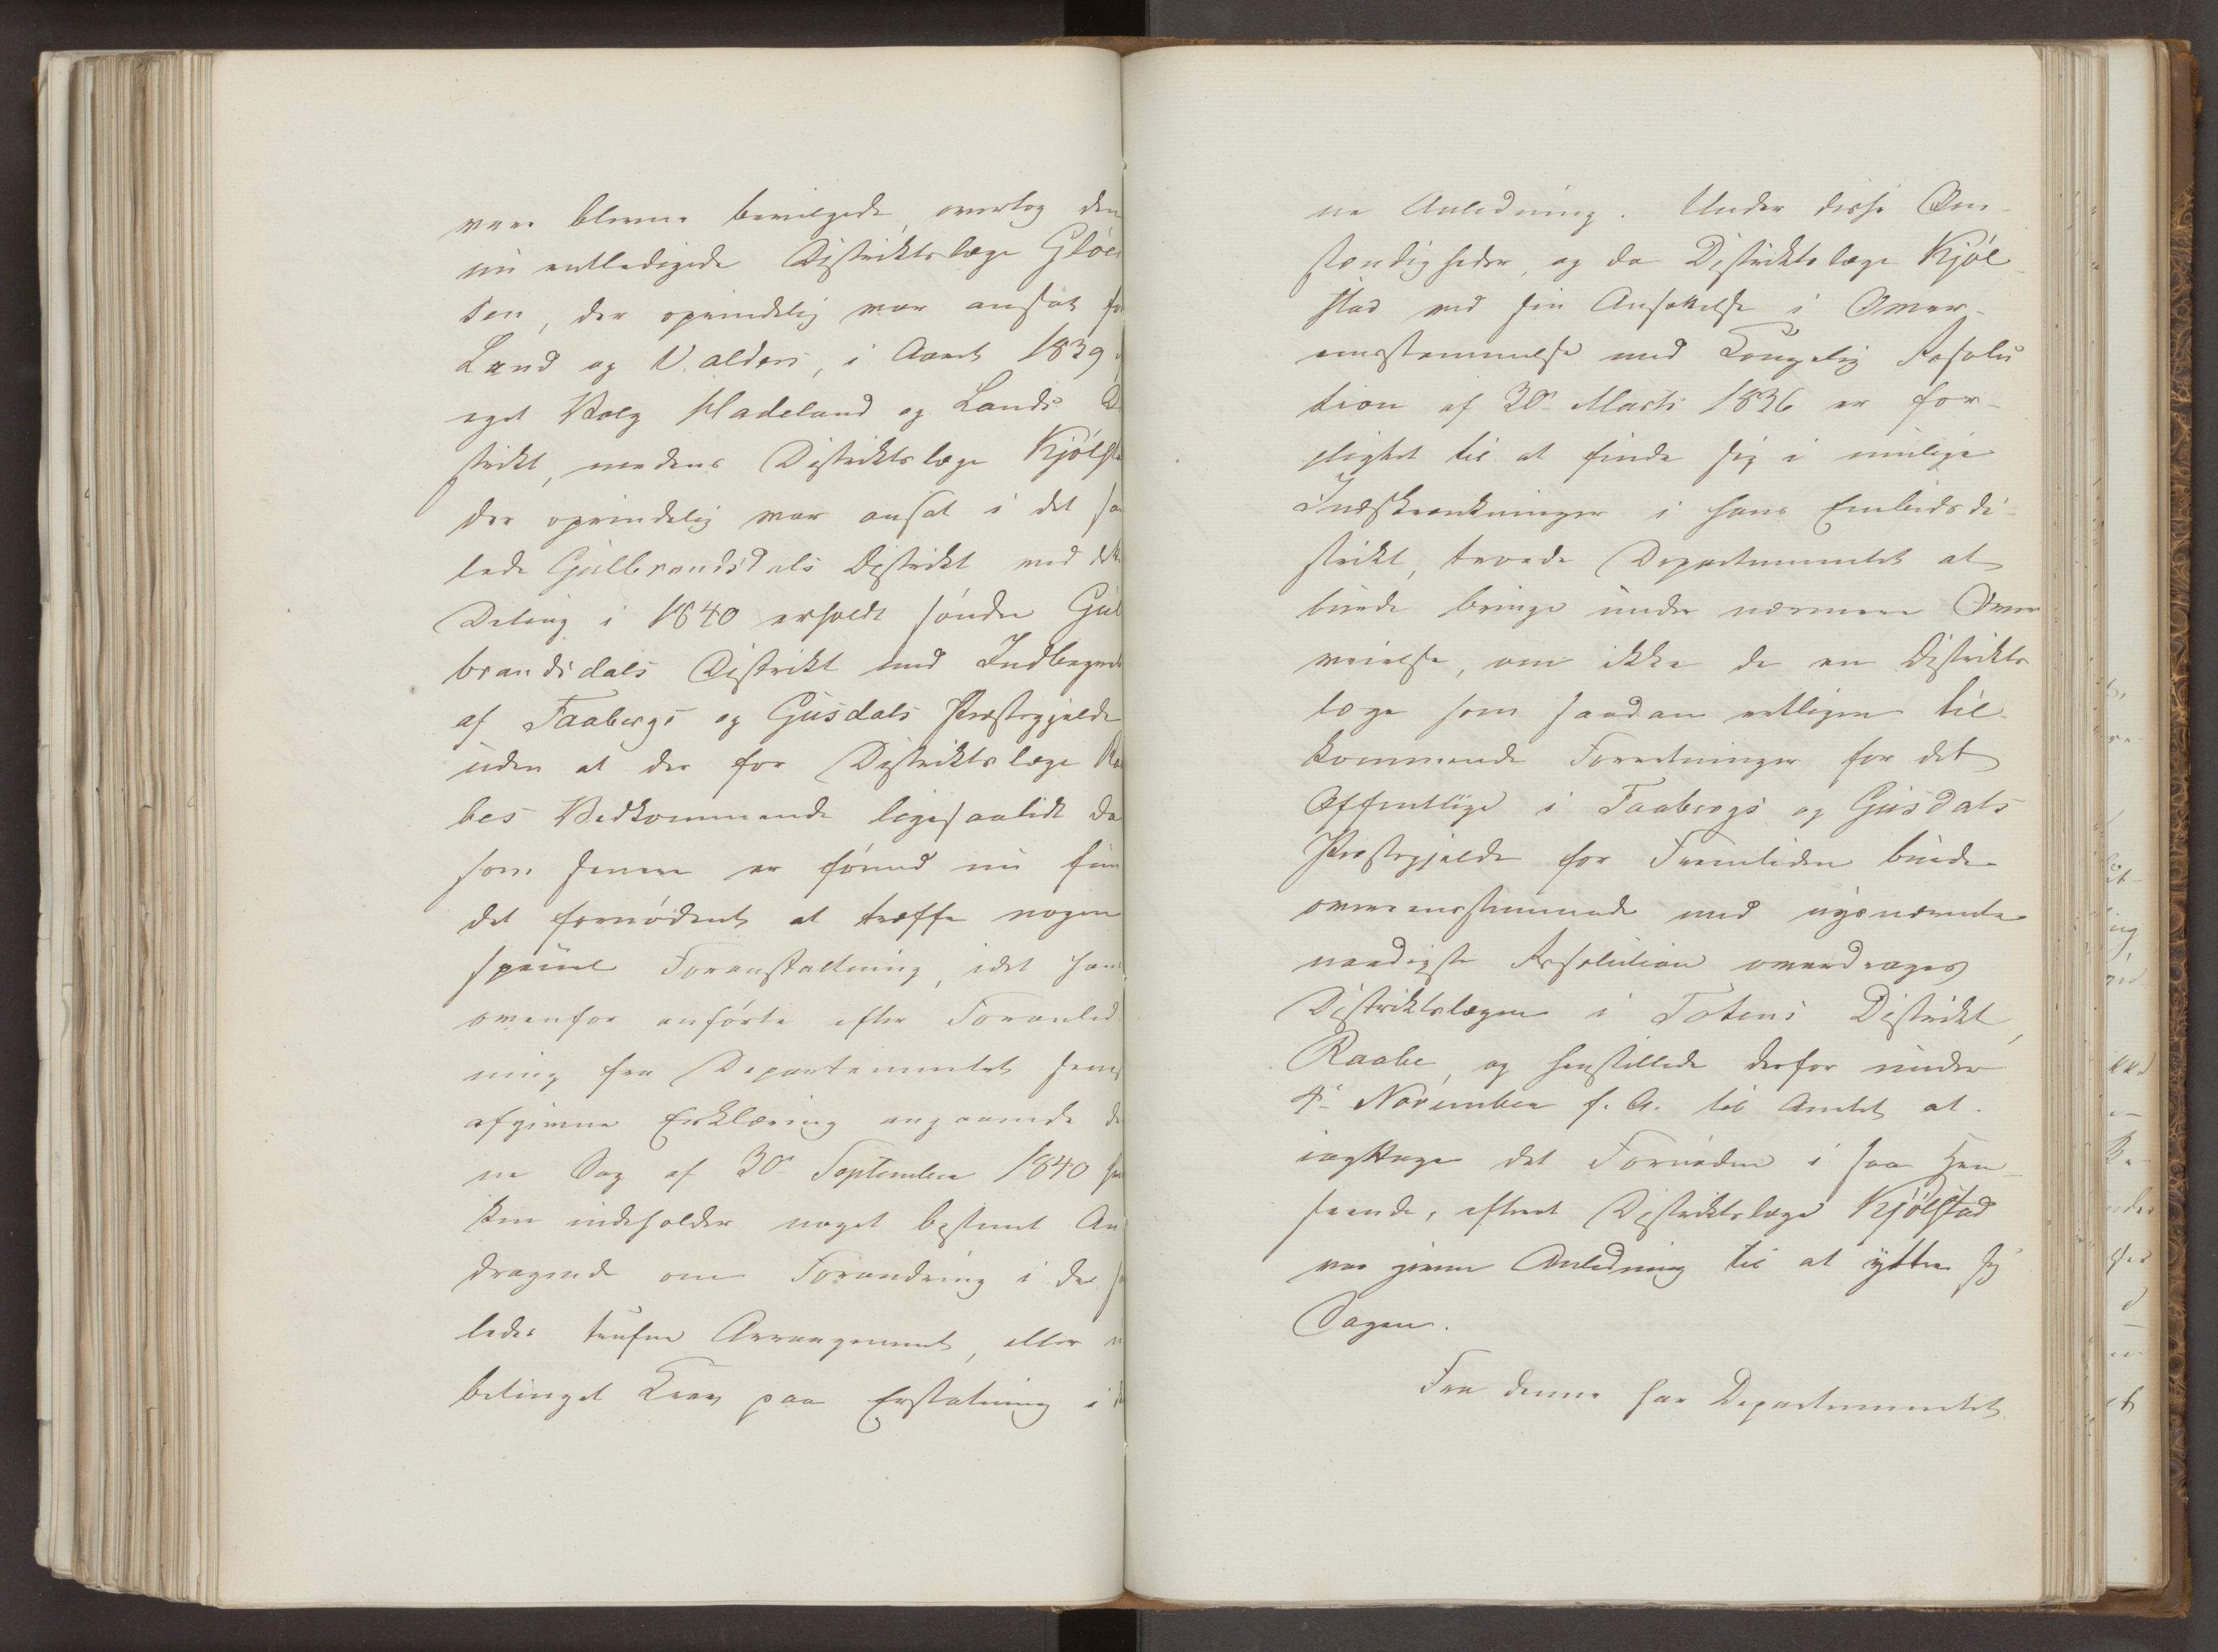 vare blevne bevilgede, overtog den
nu entledigede Distriktslæge Gløer
sen, der oprindelig var ansat for
Land og Valders, i Aaret 1839
eget Valg Hadeland og Lands Di
strikt, medens Distriktslæge Kjølsta
der oprindelig var ansat i det sa
lede Gulbrandsdals Distrikt ved dets
Deling i 1840 erholdt søndre Gul
brandsdals Distrikt med Indbegreb
af Faabergs og Gusdals Præstegjelde
uden at der for Distriktslæge Ra
bes Vedkommende ligesaalidt da
som senere er førend nu fun
det fornødent at træffe nogen
speciel Foranstaltning, idet hans
ovenfor anførte efter Foranled
ning fra Departementet senest
afgivne Erklæring angaaende den
ne Sag af 30. September 1840 hver
ken indeholder noget bestemt An
dragende om Forandring i det saa
ledes trufne Arrangement, eller u
betinget Krav paa Erstatning i
ne Anledning. Under disse Om-
stændigheder, og da Distriktslæge Kjøl-
stad ved sin Ansættelse i Over-
eensstemmelse med Kongelig Resolu
tion af 30. Marts 1836 er for-
pligtet til at finde sig i mulige
Indskrænkninger i hans Embedsdi-
strikt, troede Departementet at
burde bringe under nærmere Over
veielse, om ikke de en Distrikts
læge som saadan retligen til-
kommende Forretninger for det
Offentlige i Faabergs og Gusdals
Præstegjelde for Fremtiden burde
overeensstemmende med nysnævnte
naadigste Resolution overdrages
Distriktslægen i Totens Distrikt,
Raabe, og henstillede derfor under
4. November f. A. til Amtet at
iagttage det Fornødne i saa Hen-
seende, efterat Distriktslæge Kjølstad
var given Anledning til at yttre sig i
Sagen.
Fra denne har Departementet